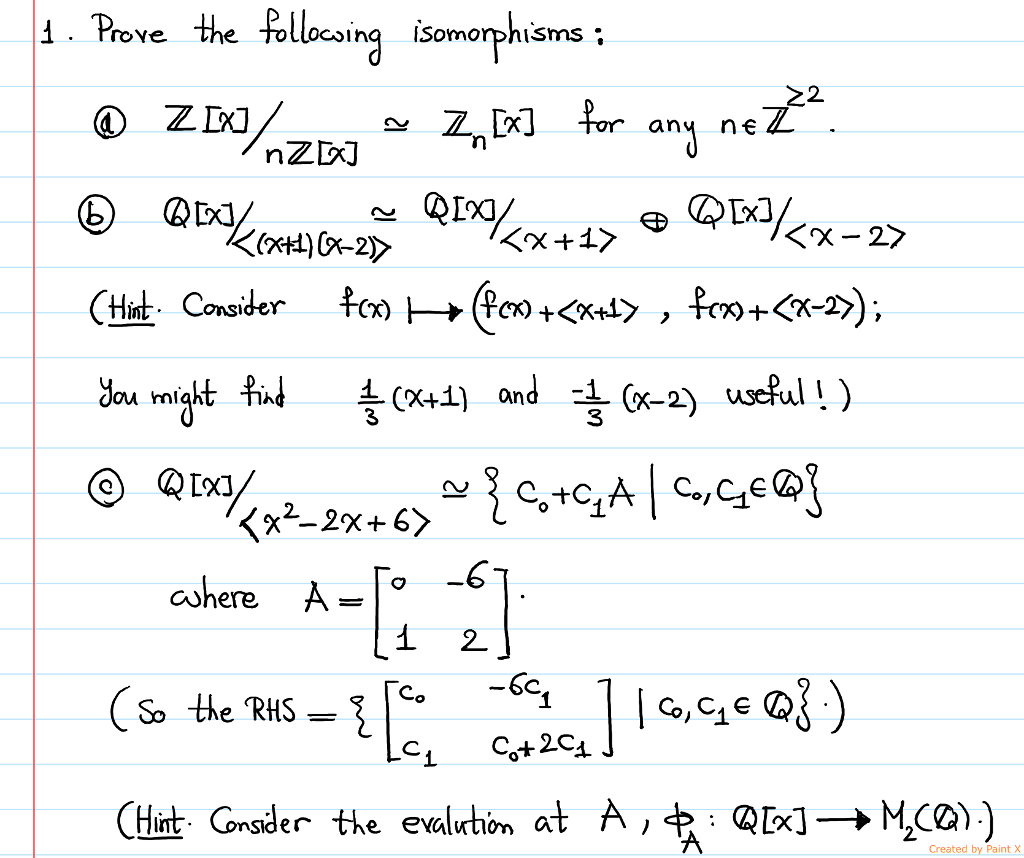 1. Prove the following isomorphisms:
ⓐ ℤ[x]/nℤ[x] ≃ ℤₙ[x] for any n∈ℤ^≥2.
ⓑ ℚ[x]/<(x+1)(x-2)> ≃ ℚ[x]/<x+1> ⊕ ℚ[x]/<x-2>
(Hint. Consider f(x) ↦ (f(x)+<x+1>, f(x)+<x-2>);
You might find 1/3 (x+1) and -1/3 (x-2) useful!)
ⓒ ℚ[x]/<x²-2x+6> ≃ { c₀+c₁A | c₀,c₁∈ℚ}
where A = [0 -6; 1 2].
(So the RHS = {[c₀ -6c₁; c₁ c₀+2c₁] | c₀,c₁∈ℚ}.)
(Hint. Consider the evalution at A, ϕ_A : ℚ[x] → M₂(ℚ).)
Created by Paint X